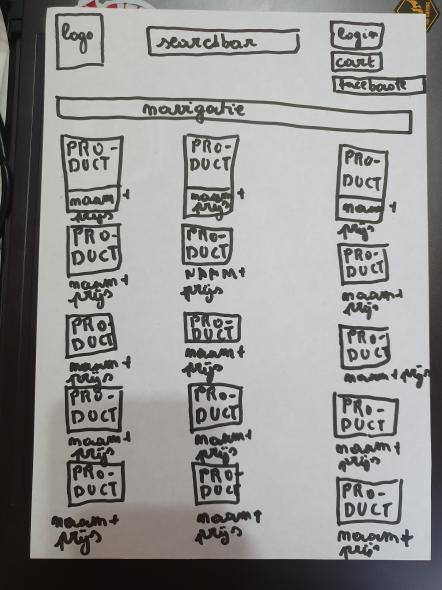 logo
searchbar
login
cart
facebook
navigatie
PRO-
DUCT
naam +
prijs
PRO-
DUCT
naam +
prijs
PRO-
DUCT
naam +
prijs
PRO-
DUCT
naam +
prijs
PRO-
DUCT
NAAM +
prijs
PRO-
DUCT
naam +
prijs
PRO-
DUCT
naam +
prijs
PRO-
DUCT
naam +
prijs
PRO-
DUCT
naam + prijs
PRO-
DUCT
naam +
prijs
PRO-
DUCT
naam +
prijs
PRO-
DUCT
naam +
prijs
PRO-
DUCT
naam +
prijs
PRO-
DUCT
naam +
prijs
PRO-
DUCT
naam +
prijs